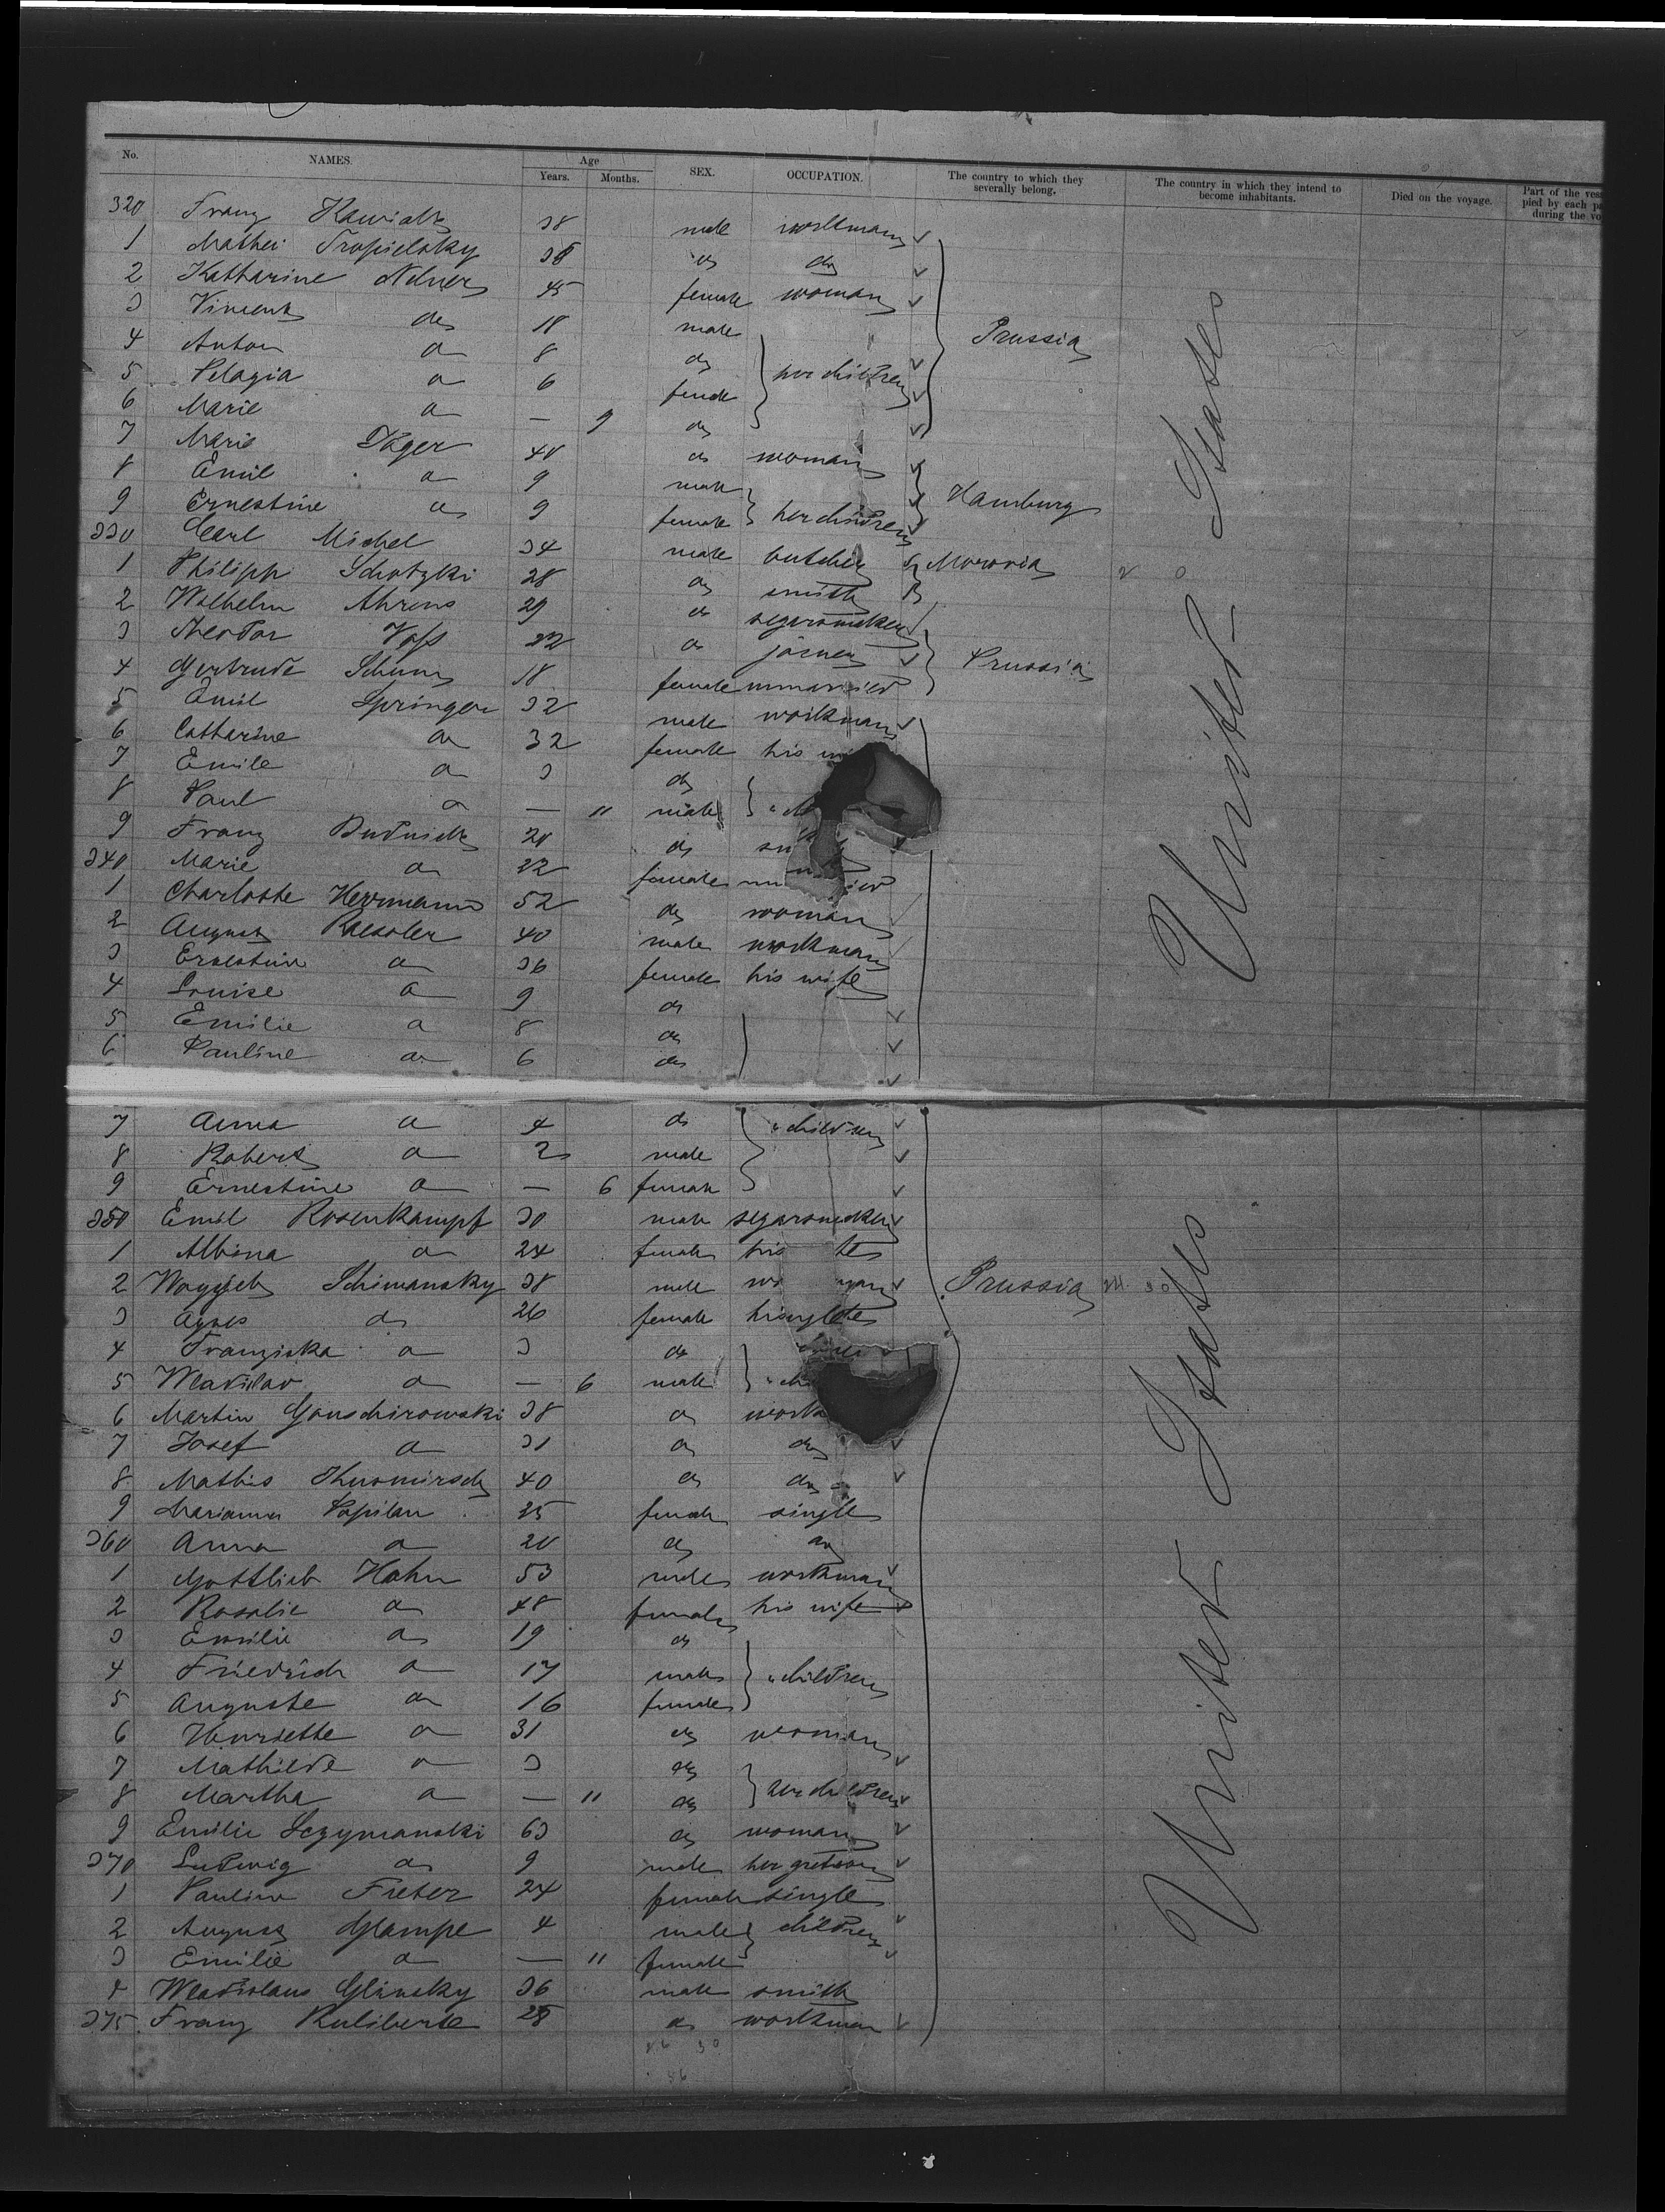 No. NAMES. Age Years. Months. SEX. OCCUPATION. The country to which they severally belong. The country in which they intend to become inhabitants. Died on the voyage. Part of the ves pied by each p during the vo
320 Franz 38 male workman
1 Mathei 36 do do
2 Katharine 45 female woman
3 Vincent do 18 male
4 Anton do 8 do her children Prussia
5 Pelagia do 6 female
6 Marie do — 9 do
7 Marie Jäger 40 do woman
8 Emil do 9 male Hamburg
9 Ernestine do 9 female her children
330 Carl Michel 34 male butcher Moravia
1 Philipp Schotzki 28 do smith
2 Wilhelm Ahrens 29 do segarsmaker
3 Theodor Voss 22 do joiner Prussia
4 Gertrude Schum 18 female unmarried
5 Emil Springer 32 male workman
6 Catharine do 32 female his
7 Emile do 3 do
8 Paul do — 11 male " ch
9 Franz Dudnick 20 do
340 Marie do 22 female
1 Charlotte Herrmann 52 do woman
2 August Raessler 40 male workman
3 Ernestine do 36 female his wife
4 Louise do 9 do
5 Emilie do 8 do
6 Pauline do 6 do
7 Anna do 4 do " children
8 Robert do 2 male
9 Ernestine do — 6 female
350 Emil Rosenkampf 30 male segarsmaker
1 Albina do 24 female his
2 Schimansky 38 male Prussia
3 Agnes do 26 female
4 Franziska do 3 do
5 Wladislav do — 6 male " ch
6 Martin Gonschirowski 38 do work
7 Josef do 31 do do
8 Mathis 40 do do
9 Marianna Papilan 25 female single
360 Anna do 20 do do
1 Gottlieb Hahn 53 male workman
2 Rosalie do 48 female his wife
3 Emilie do 19 do
4 Friedrich do 17 male " children
5 Auguste do 16 female
6 Henriette do 31 do woman
7 Mathilde do 3 do
8 Martha do — 11 do her children
9 Emilie Sczymanski 63 do woman
370 Ludwig do 9 male her
1 Pauline Freter 24 female single
2 August Glampe 4 male children
3 Emilie do — 11 female
4 Wladislaus Glinsky 36 male smith
375 Franz Kuliberte 28 do workman
United States
United States